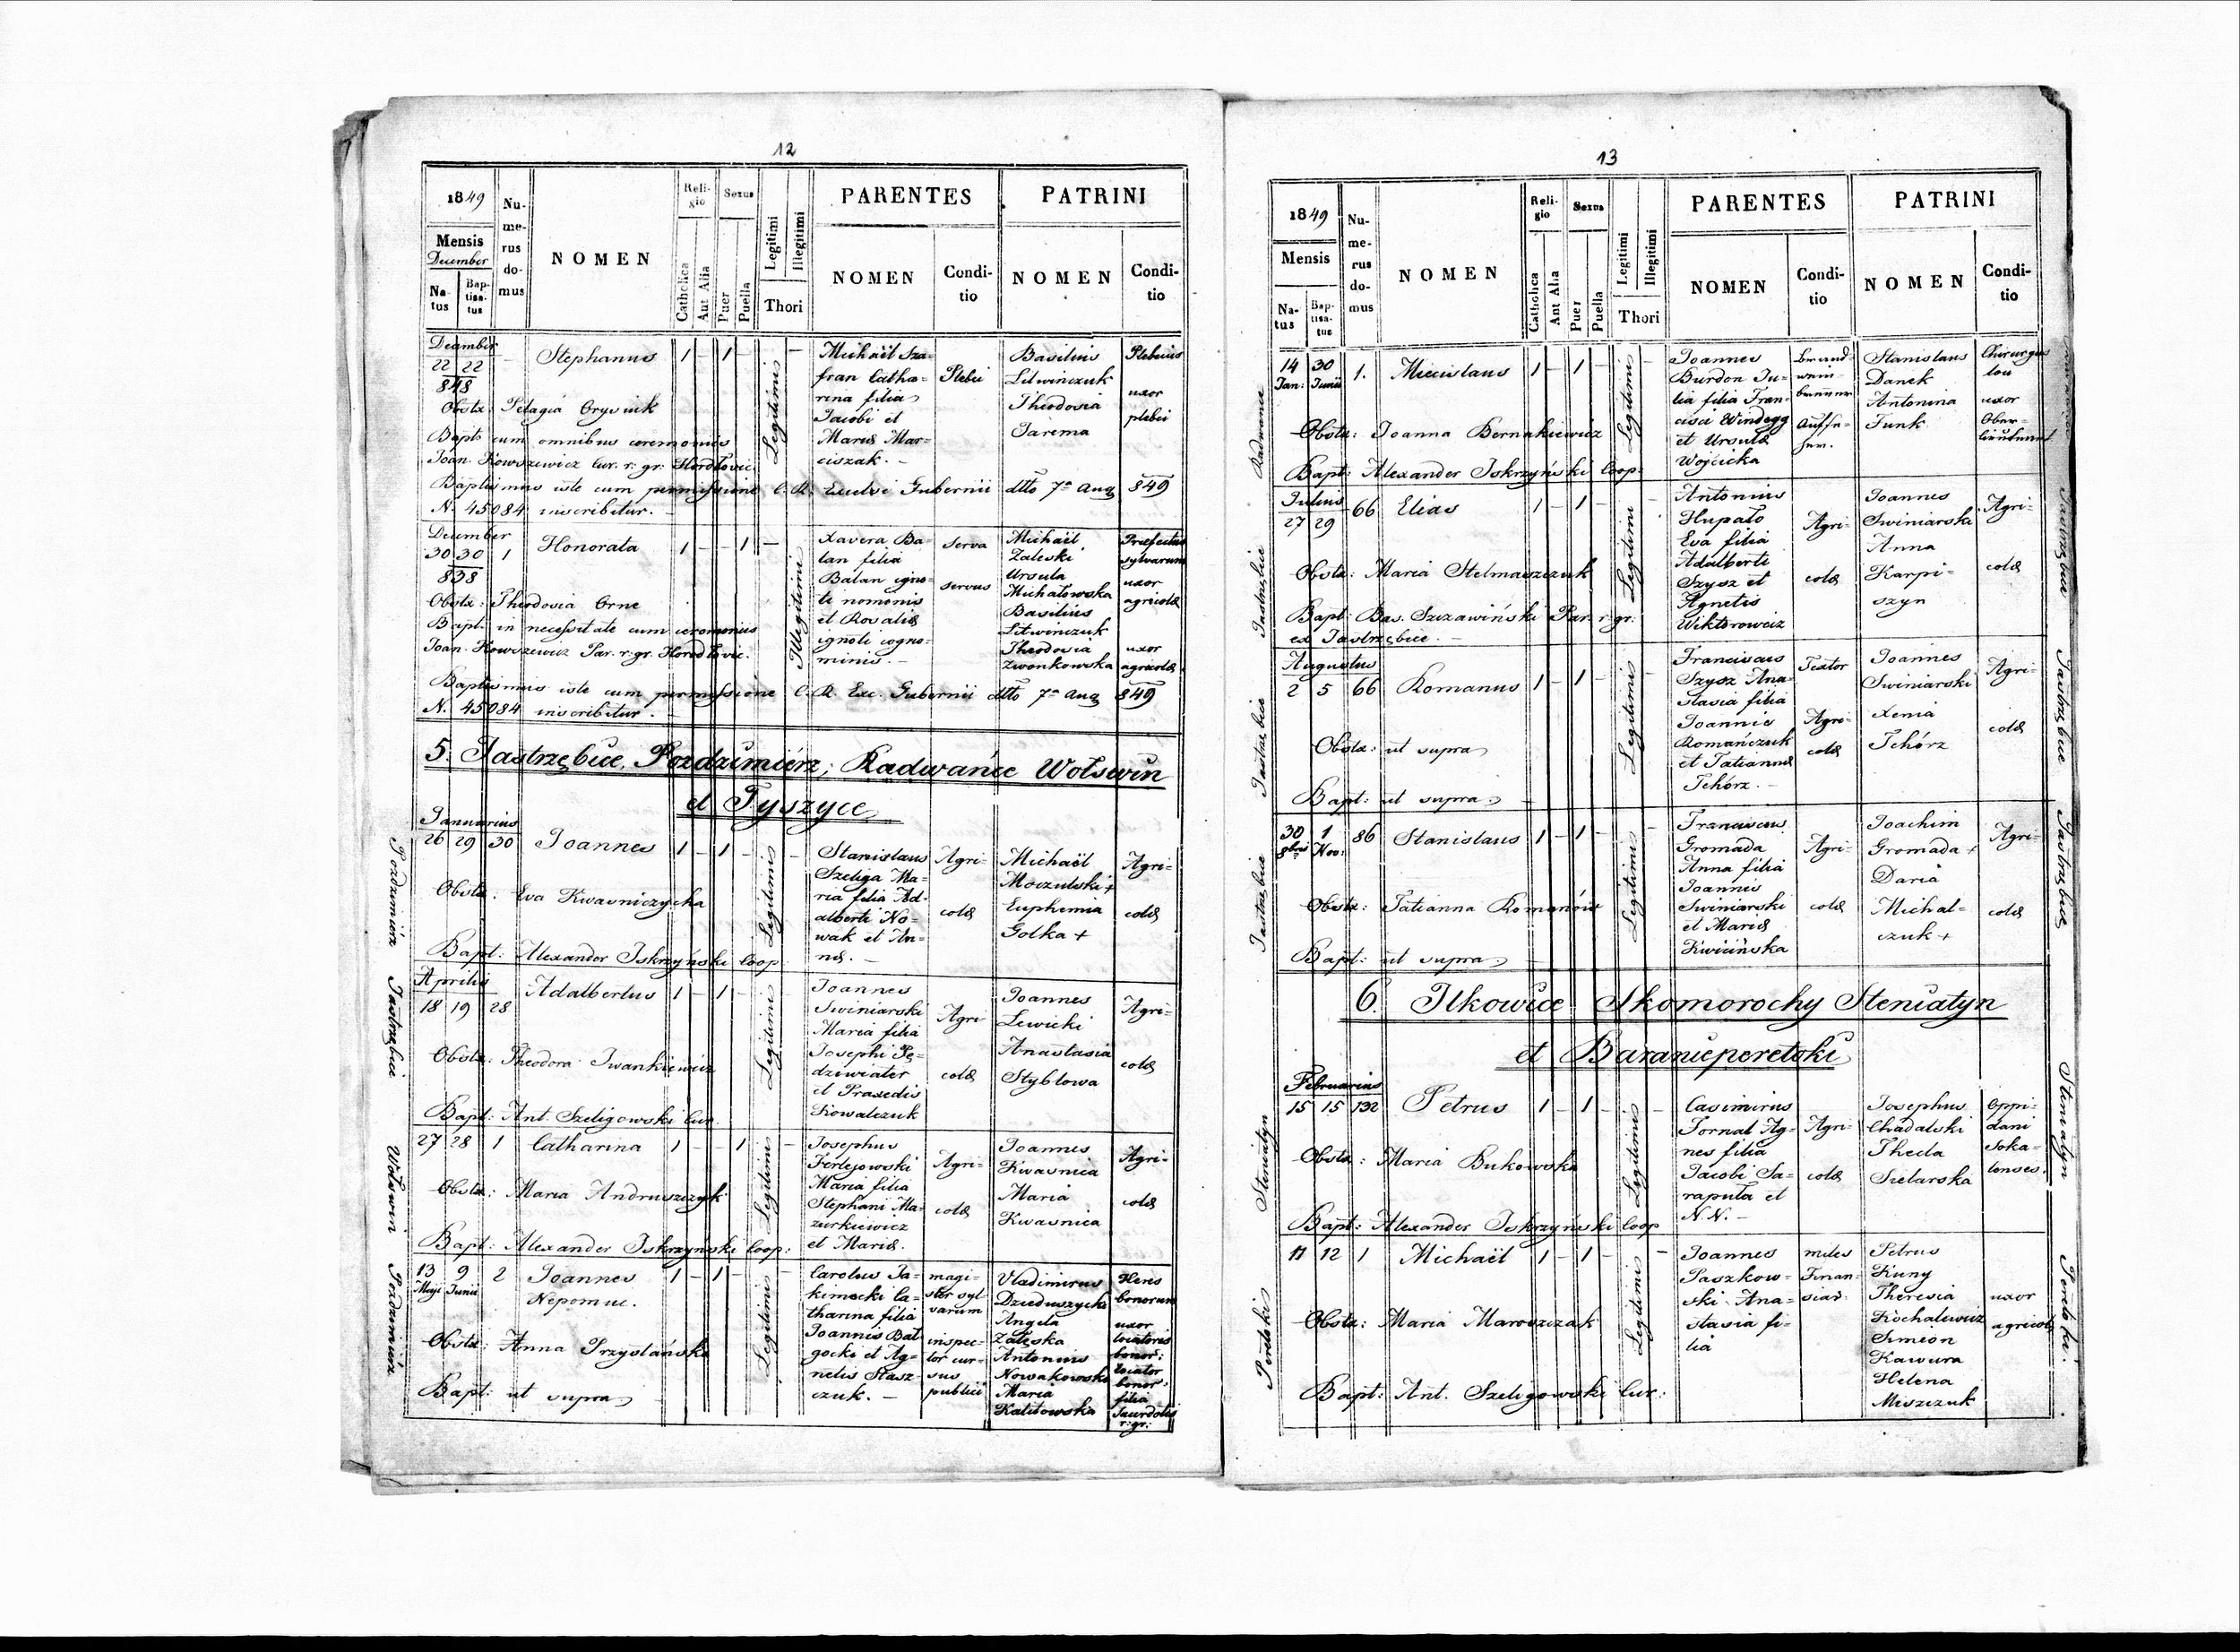 12
1849
Mensis
December
Na-
tus
Bap-
tisa-
tus
Nu-
me-
rus
do-
mus
NOMEN
Reli-
gio
Catholica
Aut Alia
Sexus
Puer
Puella
Legitimi
Illegitimi
Thori
PARENTES
NOMEN
Condi-
tio
PATRINI
NOMEN
Condi-
tio
December
22 22 – Stephanus 1 – 1 – Legitimi –
848
Michaël Sza=
fran Catha=
rina filia
Jacobi et
Mariæ Mar=
ciszak. –
Plebei
Basilius
Litwinczuk
Theodosia
Jarema
Plebeius
uxor
plebei
Obstx: Pelagia Orysiuk
Bapts cum omnibus ceremoniis
Joan.
Baptismus iste cum permissione C. R. Excelsi Gubernii ddto 7a Aug 849
N. 45084 inscribitur. –
December
30 30 1 Honorata 1 – – 1 – Illegitimi
838
Xavera Ba=
lan filia
Balan igno=
ti nominis
et Rosaliæ
ignoti cogno=
minis. –
serva
servus
Michaël
Zaleski
Ursula
Michałowska
Basilius
Litwinczuk
Theodosia
Zwonkowska
Præfectus
sylvarum
uxor
agricolæ
uxor
agricolæ
Obstx: Theodosia Orne
Bapt: in necessitate cum ceremoniis
Joan.
Baptismus iste cum permissione C. R. Exc. Gubernii ddto 7a Aug 849
N. 45084 inscribitur. –
5. Jastrzębice, Pozdzimierz, Radwańce Wołswin
et Tyszyce
Pozdzimierz
Januarius
26 29 30 Joannes 1 – 1 – Legitimi –
Stanislaus
Szeliga Ma=
ria filia Ad=
alberti No=
wak et An=
næ. –
Agri=
colæ
Michaël
Moczulski +
Euphemia
Golka +
Agri=
colæ
Obstx: Eva Kwasniczycha
Bapt: Alexander Iskrzyński Coop.
Jastrzębice
Aprilis
18 19 28 Adalbertus 1 – 1 – Legitimi
Joannes
Swiniarski
Maria filia
Josephi Pę=
dziwiater
et Praxedis
Kowalczuk
Agri
colæ
Joannes
Lewicki
Anastasia
Stybłowa
Agri=
colæ
Obstx: Theodora Iwankiewicz
Bapt: Ant. Szeligowski Cur.
Wołswin
27 28 1 Catharina 1 – – 1 Legitimi –
Josephus
Maria filia
Stephani Ma=
zurkiewicz
et Mariæ.
Agri=
colæ
Joannes
Kwasnica
Maria
Kwasnica
Agri=
colæ
Obstx: Maria Andruszczyk
Bapt: Alexander Iskrzyński Coop:
Pozdzimierz
13 9 2 Joannes 1 – 1 – Legitimi
Maji Junii Nepomuc.
Carolus Ja=
kimecki Ca=
tharina filia
Joannis Bał
gocki et Ag=
netis Stasz=
czuk. –
magi=
ster syl
varum
inspec=
tor cur=
sus
publici
Vladimirus
Dzieduszycki
Angela
Załęska
Antonius
Nowakowski
Maria
Kalitowska
Heres
bonorum
uxor
locatoris
bonor:
locator
bonor:
filia
Sacerdotis
r: gr:
Obstx: Anna Przyslańska
Bapt: ut supra
13
1849
Mensis
Na-
tus
Bap-
tisa-
tus
Nu-
me-
rus
do-
mus
NOMEN
Reli-
gio
Catholica
Aut Alia
Sexus
Puer
Puella
Legitimi
Illegitimi
Thori
PARENTES
NOMEN
Condi-
tio
PATRINI
NOMEN
Condi-
tio
Radwańce
14 30 1. Miecislaus 1 – 1 – Legitimi –
Jan: Junii
Joannes
Burdon Ju=
lia filia Fran=
cisci Windegg
et Ursulæ
Wojcicka
Brand=
wein
brenner
Auffse=
her.
Stanislaus
Danek
Antonina
Funk
Chirurgus
uxor
Ober=
lieutenant
Obstx: Joanna Bernakiewicz
Bapt: Alexander Iskrzyński Coop.
Jastrzębice
Julius
27 29 66 Elias 1 – 1 – Legitimi –
Antonius
Hupało
Eva filia
Adalberti
Szysz et
Agnetis
Wiktorowicz
Agri=
colæ
Joannes
Swiniarski
Anna
Karpi=
szyn
Agri=
colæ
Obstx: Maria Stelmaszczuk
Bapt: Bas. Szczawiński Par. r. gr:
ex Jastrzębice. –
Jastrzębice
Augustus
2 5 66 Romanus 1 – 1 – Legitimi –
Franciscus
Szysz Ana=
stasia filia
Joannis
Romańczuk
et Tatiannæ
Tchórz. –
Textor
Agri=
colæ
Joannes
Swiniarski
Xenia
Tchórz
Agri=
colæ
Obstx: ut supra
Bapt: ut supra –
Jastrzębice
30 1 86 Stanislaus 1 – 1 – Legitimi –
8bris Nov:
Franciscus
Gromada
Anna filia
Joannis
Swiniarski
et Mariæ
Kwicińska
Agri=
colæ
Joachim
Gromada +
Daria
Michal=
czuk +
Agri=
colæ
Obstx: Tatianna Romanów
Bapt: ut supra –
6. Ilkowice Skomorochy Steniatyn
et Baranieperetoki
Steniatyn
Februarius
15 15 132 Petrus 1 – 1 – Legitimi –
Casimirus
Tornal Ag=
nes filia
Jacobi Sa=
raputa et
N. N. –
Agri=
colæ
Josephus
Chadalski
Thecla
Sielarska
Oppi=
dani
Soka=
lenses.
Obstx: Maria Bukowska
Bapt: Alexander Iskrzyński Coop
Peretoki
11 12 1 Michaël 1 – 1 – Legitimi –
Joannes
Paszkow=
ski Ana=
stasia fi=
lia
miles
Finan=
ciar:
Petrus
Kuny
Theresia
Kochalewicz
Simeon
Kawura
Helena
Miszczuk
uxor
agricolæ
Obstx: Maria Maroszczak
Bapt: Ant. Szeligowski Cur:
Jastrzębice
Jastrzębice
Jastrzębice
Steniatyn
Peretoki.